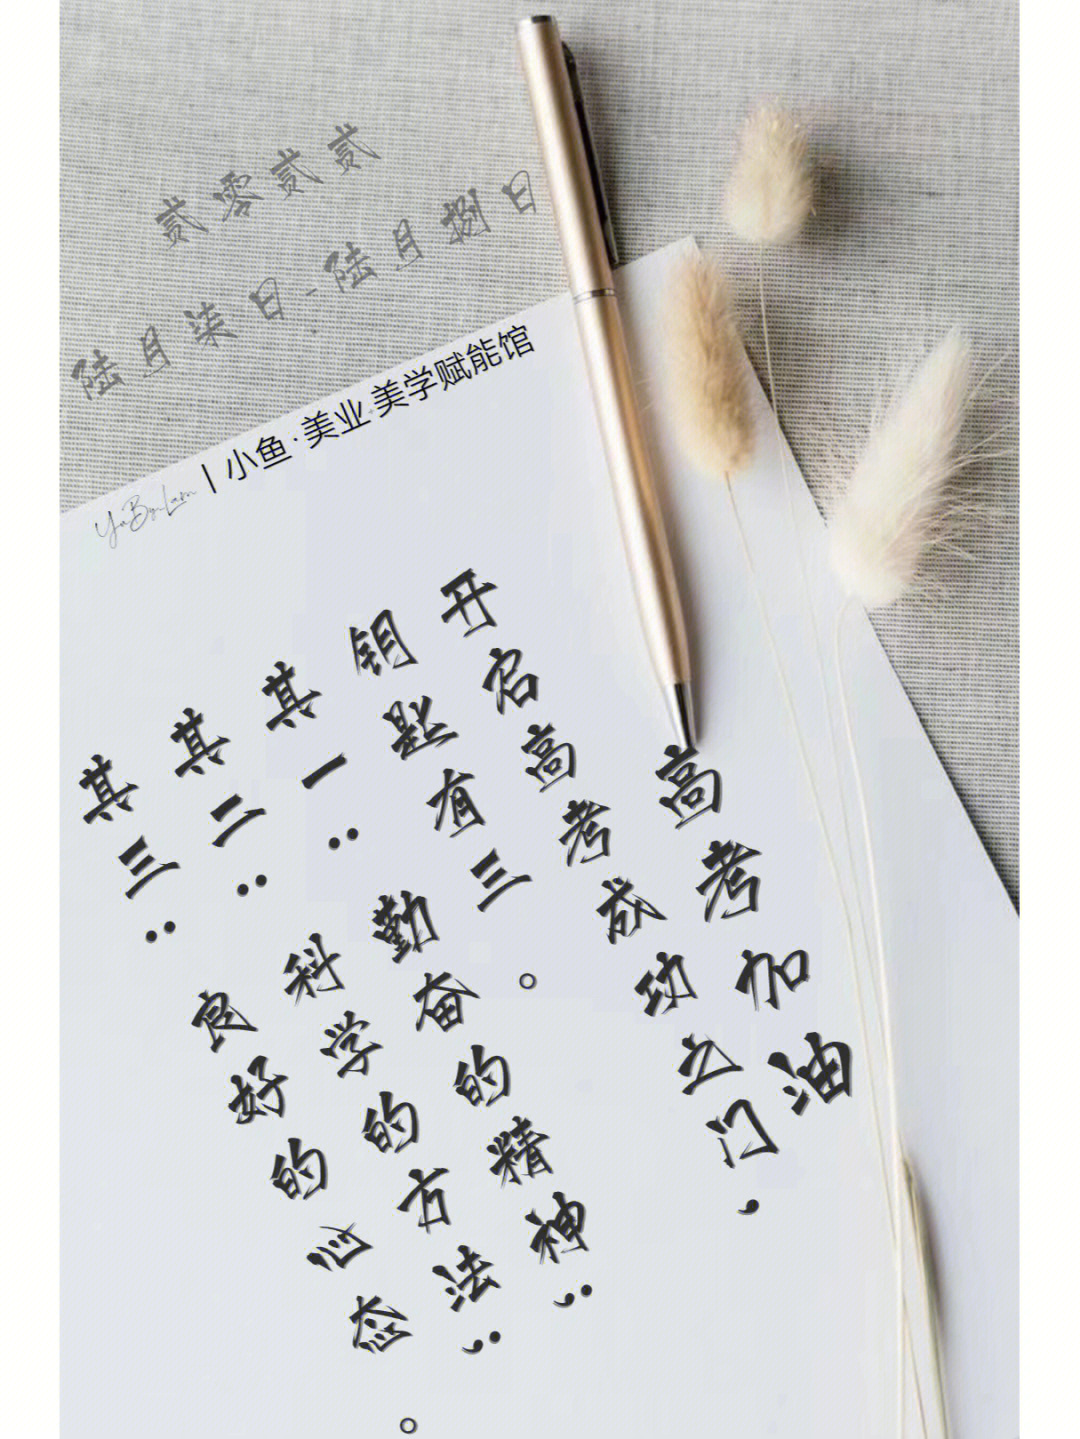 贰零贰贰
陆月柒日-陆月捌日
YaBynLam | 小鱼·美业·美学赋能馆
高考加油
开启高考成功之门，
钥匙有三。
其一：勤奋的精神；
其二：科学的方法；
其三：良好的心态。